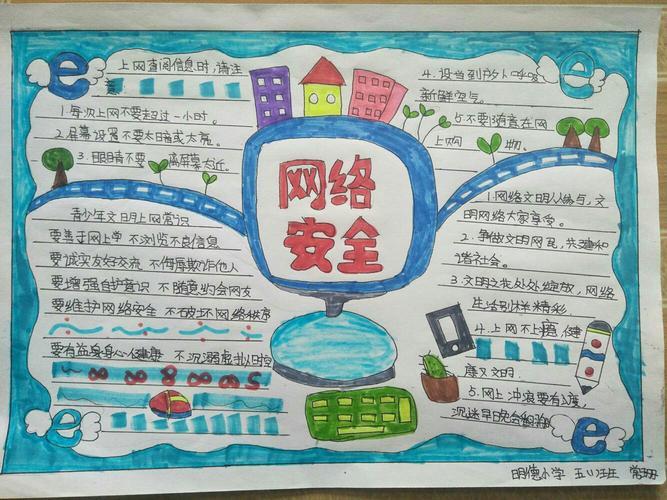 上网查阅信息时,请注
意
1.每次上网不要超过一小时。
2.屏幕设置不要太暗或太亮。
3.眼睛不要离屏幕太近。
4.设当到户外呼吸
新鲜空气。
5.不要随意在网
上购物。
网络
安全
青少年文明上网常识
要善于网上学 不浏览不良信息
要诚实友好交流 不侮辱欺诈他人
要增强自护意识 不随意约会网友
要维护网络安全 不破坏网络秩序
要有益身心健康 不沉溺虚拟时空
1.网络文明人人参与,文
明网络大家享受。
2.争做文明网民,共建和
谐社会。
3.文明之花处处绽放,网络
生活别样精彩
4.上网不上瘾,健
康又文明.
5.网上冲浪要有度,
沉迷早晚会
明德小学 五(1)班